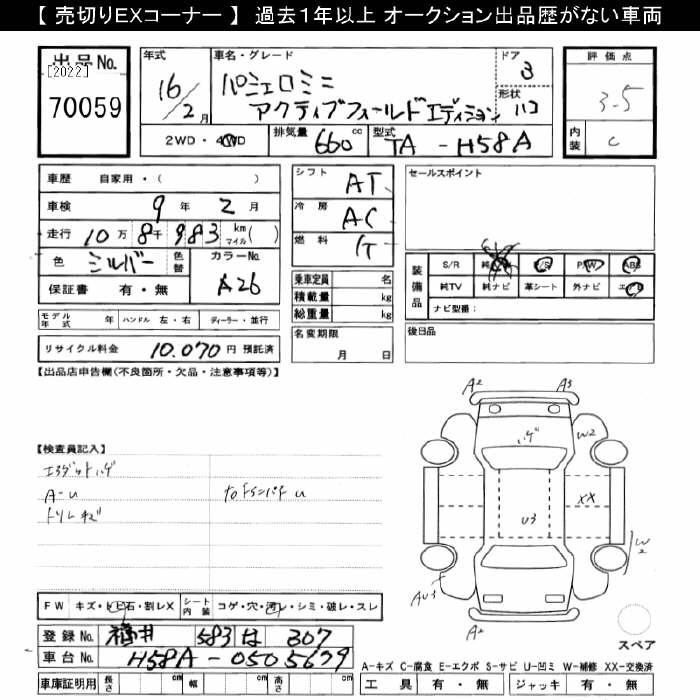 【 売切りEXコーナー 】 過去１年以上 オークション出品歴がない車両
出品No.
[2022]
70059
年式
16/2月
車名・グレード
パジェロミニ
アクティブフィールドエディション
ドア
3
形状
ハコ
2WD・4WD
排気量
660cc
型式
TA-H58A
評価点
3.5
内装
C
車歴 自家用・( )
車検 9年 2月
走行 10万8千983 km マイル( )
色 シルバー
色替
カラーNo.
A26
保証書 有・無
シフト
AT
冷房
AC
燃料
乗車定員 名
積載量 kg
総重量 kg
セールスポイント
装備品
S/R
P/S
P/W
ABS
純TV
純ナビ
革シート
外ナビ
ナビ型番：
モデル年式 年
ハンドル 左・右
ディーラー・並行
リサイクル料金 10.070円 預託済
名変期限 月 日
後日品
【出品店申告欄(不良箇所・欠品・注意事項等)】
【検査員記入】
A-U
A2
A3
ハゲ
W2
XX
U3
W2
AU3
A2
スペア
FW キズ・トビ石・割レX
シート内装 コゲ・穴・汚レ・シミ・破レ・スレ
登録No. 福井 583 は 307
車台No. H58A-0505679
車庫証明用 長さ cm 幅 cm 高さ cm
A-キズ C-腐食 E-エクボ S-サビ U-凹ミ W-補修 XX-交換済
工具 有・無 ジャッキ 有・無